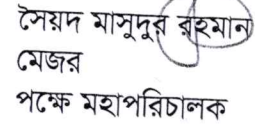 সৈয়দ মাসুদুর রহমান
মেজর
পক্ষে মহাপরিচালক